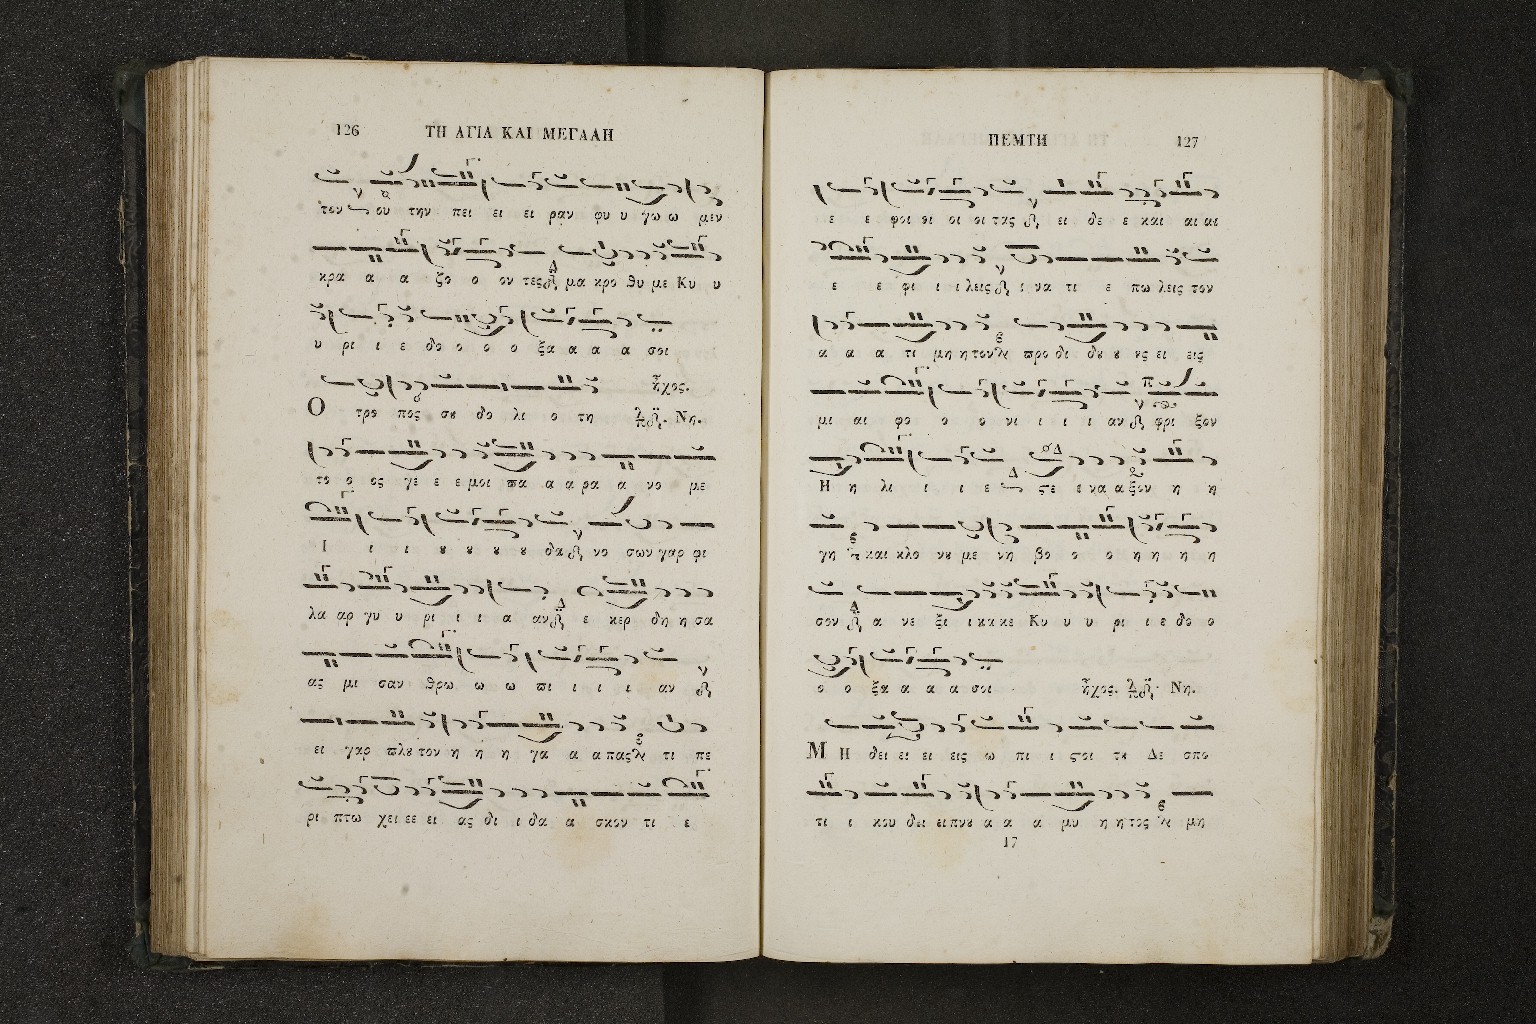 126 ΤΗ ΑΓΙΑ ΚΑΙ ΜΕΓΑΛΗ
τον ου την πει ει ει ραν φυ υ γω ω μεν
κρα α α ζο ο ον τες μα κρο θυ με Κυ υ
υ ρι ι ε δο ο ο ο ξα α α α σοι
ἦχος.
Ο τρο πος σȣ δο λι ο τη Νη.
το ο ος γε ε ε μοι πα α α ρα α νο με
Ι ι ι ȣ ȣ ȣ ȣ δα νο σων γαρ φι
λα αρ γυ υ ρι ι ι α αν ε κερ δη η σα
ας μι σαν θρω ω ω πι ι ι ι αν
ει γαρ πλȣ τον η η η γα α α πας τι πε
ρι πτω χει εε ει ας δι ι δα α σκον τι ε
ΠΕΜΤΗ 127
ε ε φοι οι οι οι τας ει δε ε και αι αι
ε ε φι ι ι λεις ι να τι ε πω λεις τον
α α α τι μη η τον προ δι δȣ ȣ ȣς ει εις
μι αι φο ο ο νι ι ι ι αν φρι ξον
Η η λι ι ι ε ϛε ε να α ξον η η
γη και κλο νȣ με νη βο ο ο η η η η
σον α νε ξι ι κα κε Κυ υ υ ρι ι ε δο ο
ο ο ξα α α α σοι ἦχος. Νη.
Μ Η δει ει ει εις ω πι ι ϛοι τȣ Δε σπο
τι ι κου δει ει πνȣ α α α μυ η η τος μη
17